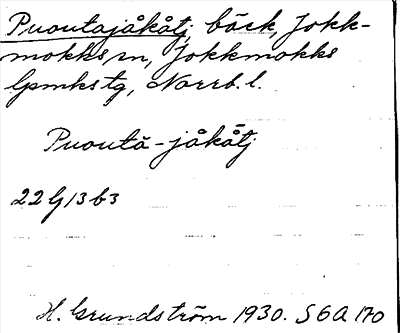 Puoutajåkåtj, bäck, Jokk-
mokks sn, Jokkmokks
lpmkstg, Norrb. l.
Puoutā-jåkåtj
22 G 13 b 3
H. Grundström 1930. S6A 170